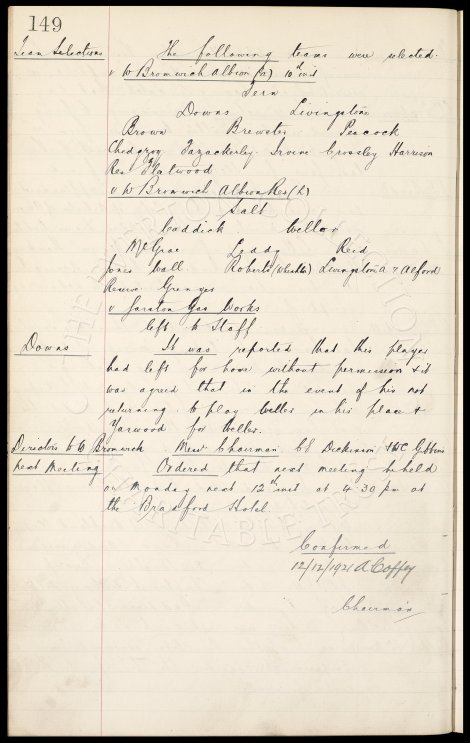 149
Team Selections The following teams were selected.
v W Bromwich Albion (a) 10th inst
Fern
Downs Livingstone
Brown Brewster Peacock
Chedgzoy Fazackerley Irvine Crossley Harrison
Res Flatwood
v W Bromwich Albion Res (h)
Salt
Caddick Weller
McGrae Leddy Reid
Jones Wall Roberts Livingstone A & Alford
Reserve Grenyer
v Garston Gas Works
Left to Staff
Downs It was reported that this player
had left for home without permission & it
was agreed that in the event of his not
returning to play Weller in his place &
Yarwood for Weller.
Directors to W Bromwich Messrs Chairman CS Dickinson & WC Gibbins
next Meeting Ordered that next meeting be held
on Monday next 12th inst at 4 30 pm at
the Bradford Hotel
Confirmed
12/12/1921 A Coffey
Chairman
THE EVERTON COLLECTION
CHARITABLE TRUST